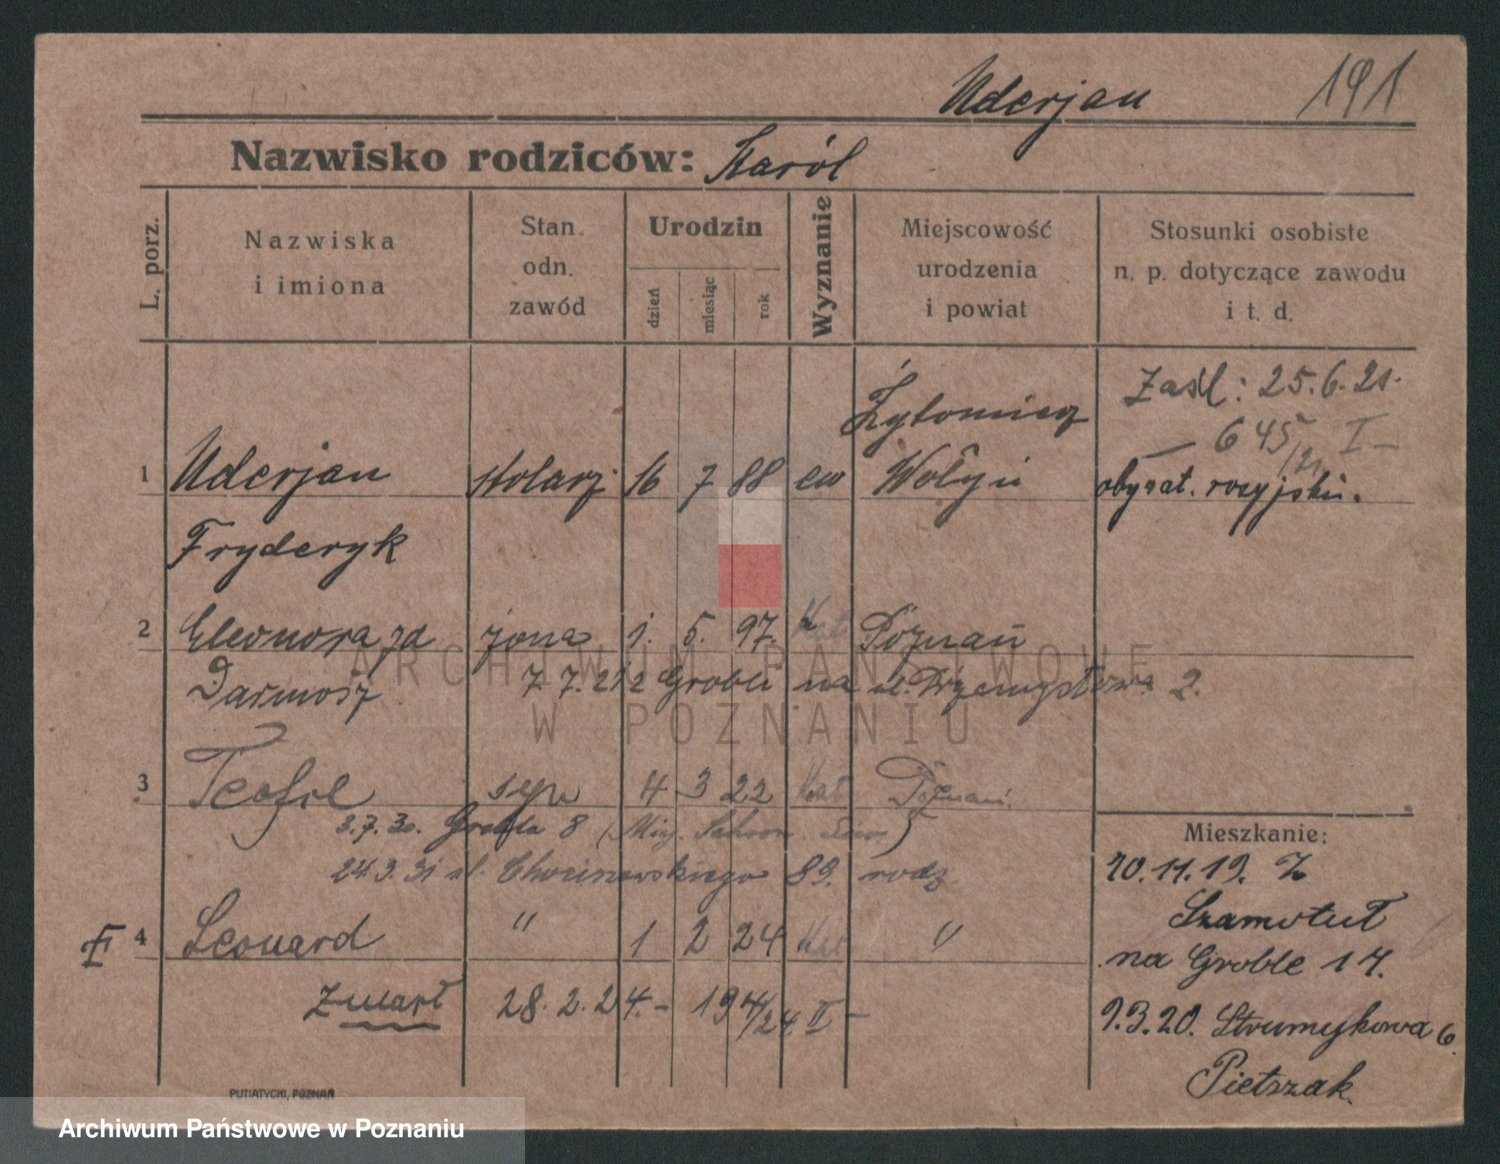 Uderjan 191
Nazwisko rodziców: Karól
L. porz.
Nazwiska
i imiona
Stan.
odn.
zawód
Urodzin
dzień
miesiąc
rok
Wyznanie
Miejscowość
urodzenia
i powiat
Stosunki osobiste
n. p. dotyczące zawodu
i t. d.
Zaśl: 25.6.21.
645/21 I –
1 Uderjan stolarz 16 7 88 ew Żytomierz
Wołyń obywat. rosyjski.
Fryderyk
2 Eleonora zd żona 1. 5. 97. Kat Poznań
Darmosz 7.7.21 z Grobli na ul. Przemysłowa 2.
3 Teofil syn 4 3 22 Kat Poznań
3.7.30. Grobla 8
24.3.31 ul. 89. rodz
Mieszkanie:
20.11.19. Z
Szamotuł
na Groble 17.
9.3.20. Strumykowa 6.
Pietszak.
4 Leonard " 1 2 24 Kat "
zmarł 28.2.24.– 194/24. II –
PUTIATYCKI, POZNAŃ
ARCHIWUM PAŃSTWOWE
W POZNANIU
Archiwum Państwowe w Poznaniu